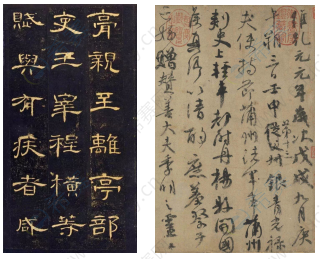 膏親至離亭部
吏王宰程橫等
賦與有疾者咸
維乾元元年歲次戊戌九月庚
午朔三日壬申第十三叔銀青光祿
夫使持節蒲州諸軍事蒲州
刺史上輕車都尉丹楊縣開國
侯真卿以清酌庶羞祭于
亡姪贈贊善大夫季明之靈曰